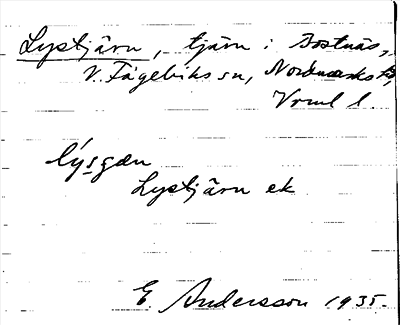 Lystjärn, tjärn i Bostnäs,
V. Fågelviks sn, Nordmarks hd,
Vrml l.
lýsgæn
Lystjärn ek
E. Andersson 1935.